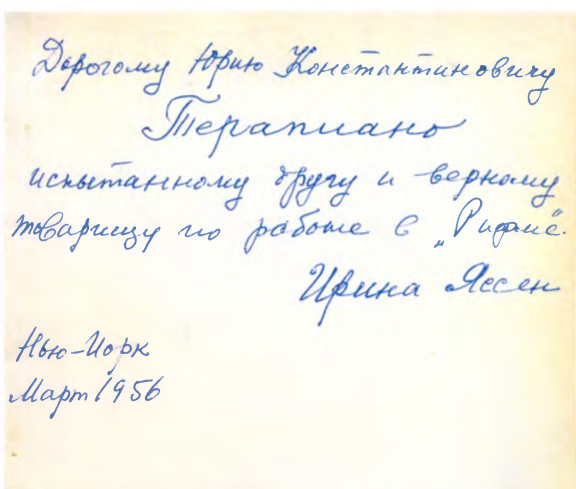 Дорогому Юрию Константиновичу
Терапиано
испытанному другу и верному
товарищу по работе в „Рифме“.
Ирина Яссен
Нью-Иорк
Март 1956